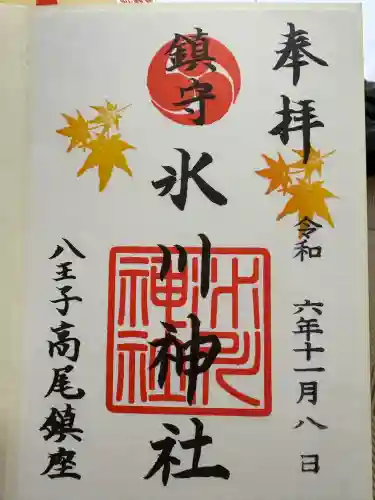 奉拝
令和 六年十一月八日
鎮守
氷川神社
氷川神社
八王子高尾鎮座